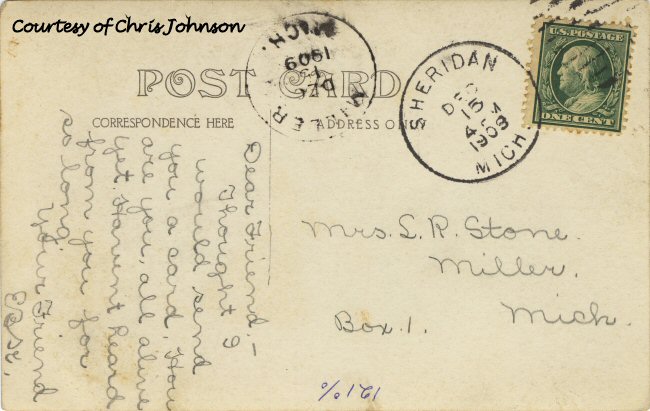 Courtesy of Chris Johnson
POST CARD
CORRESPONDENCE HERE
ADDRESS ONLY
MILLER
DEC
15
1909
MICH.
SHERIDAN
DEC
15
4 PM
1909
MICH.
U.S. POSTAGE
ONE CENT
Dear Friend,-
Thought I
would send
you a card, How
are you, all alive
yet. Havent heard
from you for
so long.
Your Friend
Mrs. L. R. Stone.
Miller.
Mich.
Box 1.